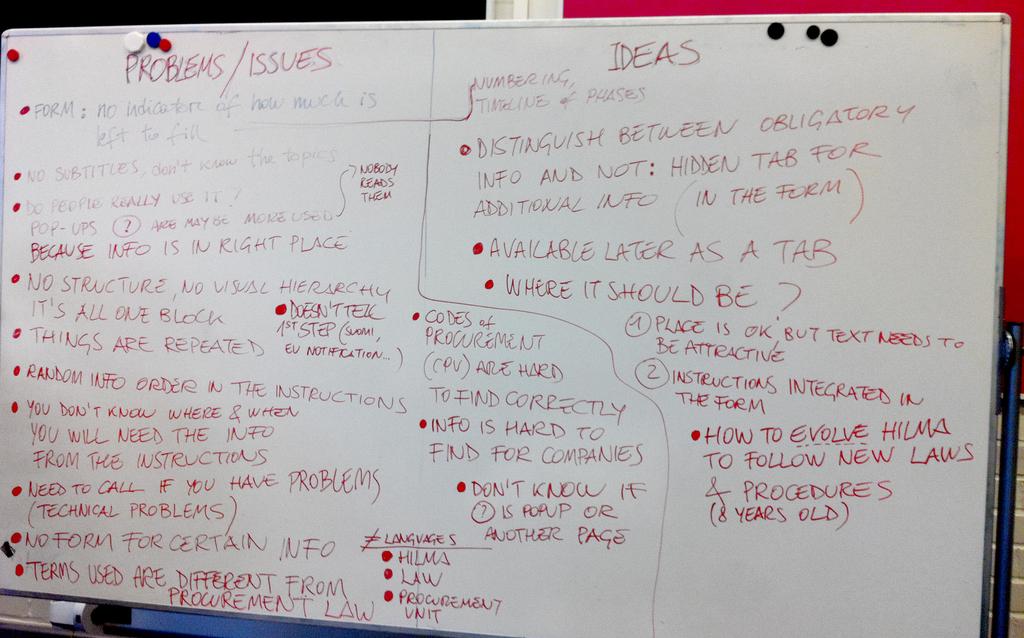 PROBLEMS/ISSUES
• FORM: no indicator of how much is
left to fill
• NO SUBTITLES, don't know the topics
• DO PEOPLE REALLY USE IT?
POP-UPS (?) ARE MAYBE MORE USED
BECAUSE INFO IS IN RIGHT PLACE
NOBODY
READS
THEM
• NO STRUCTURE, NO VISUAL HIERARCHY
IT'S ALL ONE BLOCK
• DOESN'T TELL
1ST STEP (SUOMI,
EU NOTIFICATION...)
• THINGS ARE REPEATED
• RANDOM INFO ORDER IN THE INSTRUCTIONS
• YOU DON'T KNOW WHERE & WHEN
YOU WILL NEED THE INFO
FROM THE INSTRUCTIONS
• NEED TO CALL IF YOU HAVE PROBLEMS
(TECHNICAL PROBLEMS)
• NO FORM FOR CERTAIN INFO
• TERMS USED ARE DIFFERENT FROM
PROCUREMENT LAW
≠ LANGUAGES
• HILMA
• LAW
• PROCUREMENT
UNIT
• CODES of
PROCUREMENT
(CPV) ARE HARD
TO FIND CORRECTLY
• INFO IS HARD TO
FIND FOR COMPANIES
• DON'T KNOW IF
(?) IS POPUP OR
ANOTHER PAGE
IDEAS
NUMBERING,
TIMELINE of PHASES
• DISTINGUISH BETWEEN OBLIGATORY
INFO AND NOT: HIDDEN TAB FOR
ADDITIONAL INFO (IN THE FORM)
• AVAILABLE LATER AS A TAB
• WHERE IT SHOULD BE?
1) PLACE IS OK, BUT TEXT NEEDS TO
BE ATTRACTIVE
2 INSTRUCTIONS INTEGRATED IN
THE FORM
• HOW TO EVOLVE HILMA
TO FOLLOW NEW LAWS
& PROCEDURES
(8 YEARS OLD)